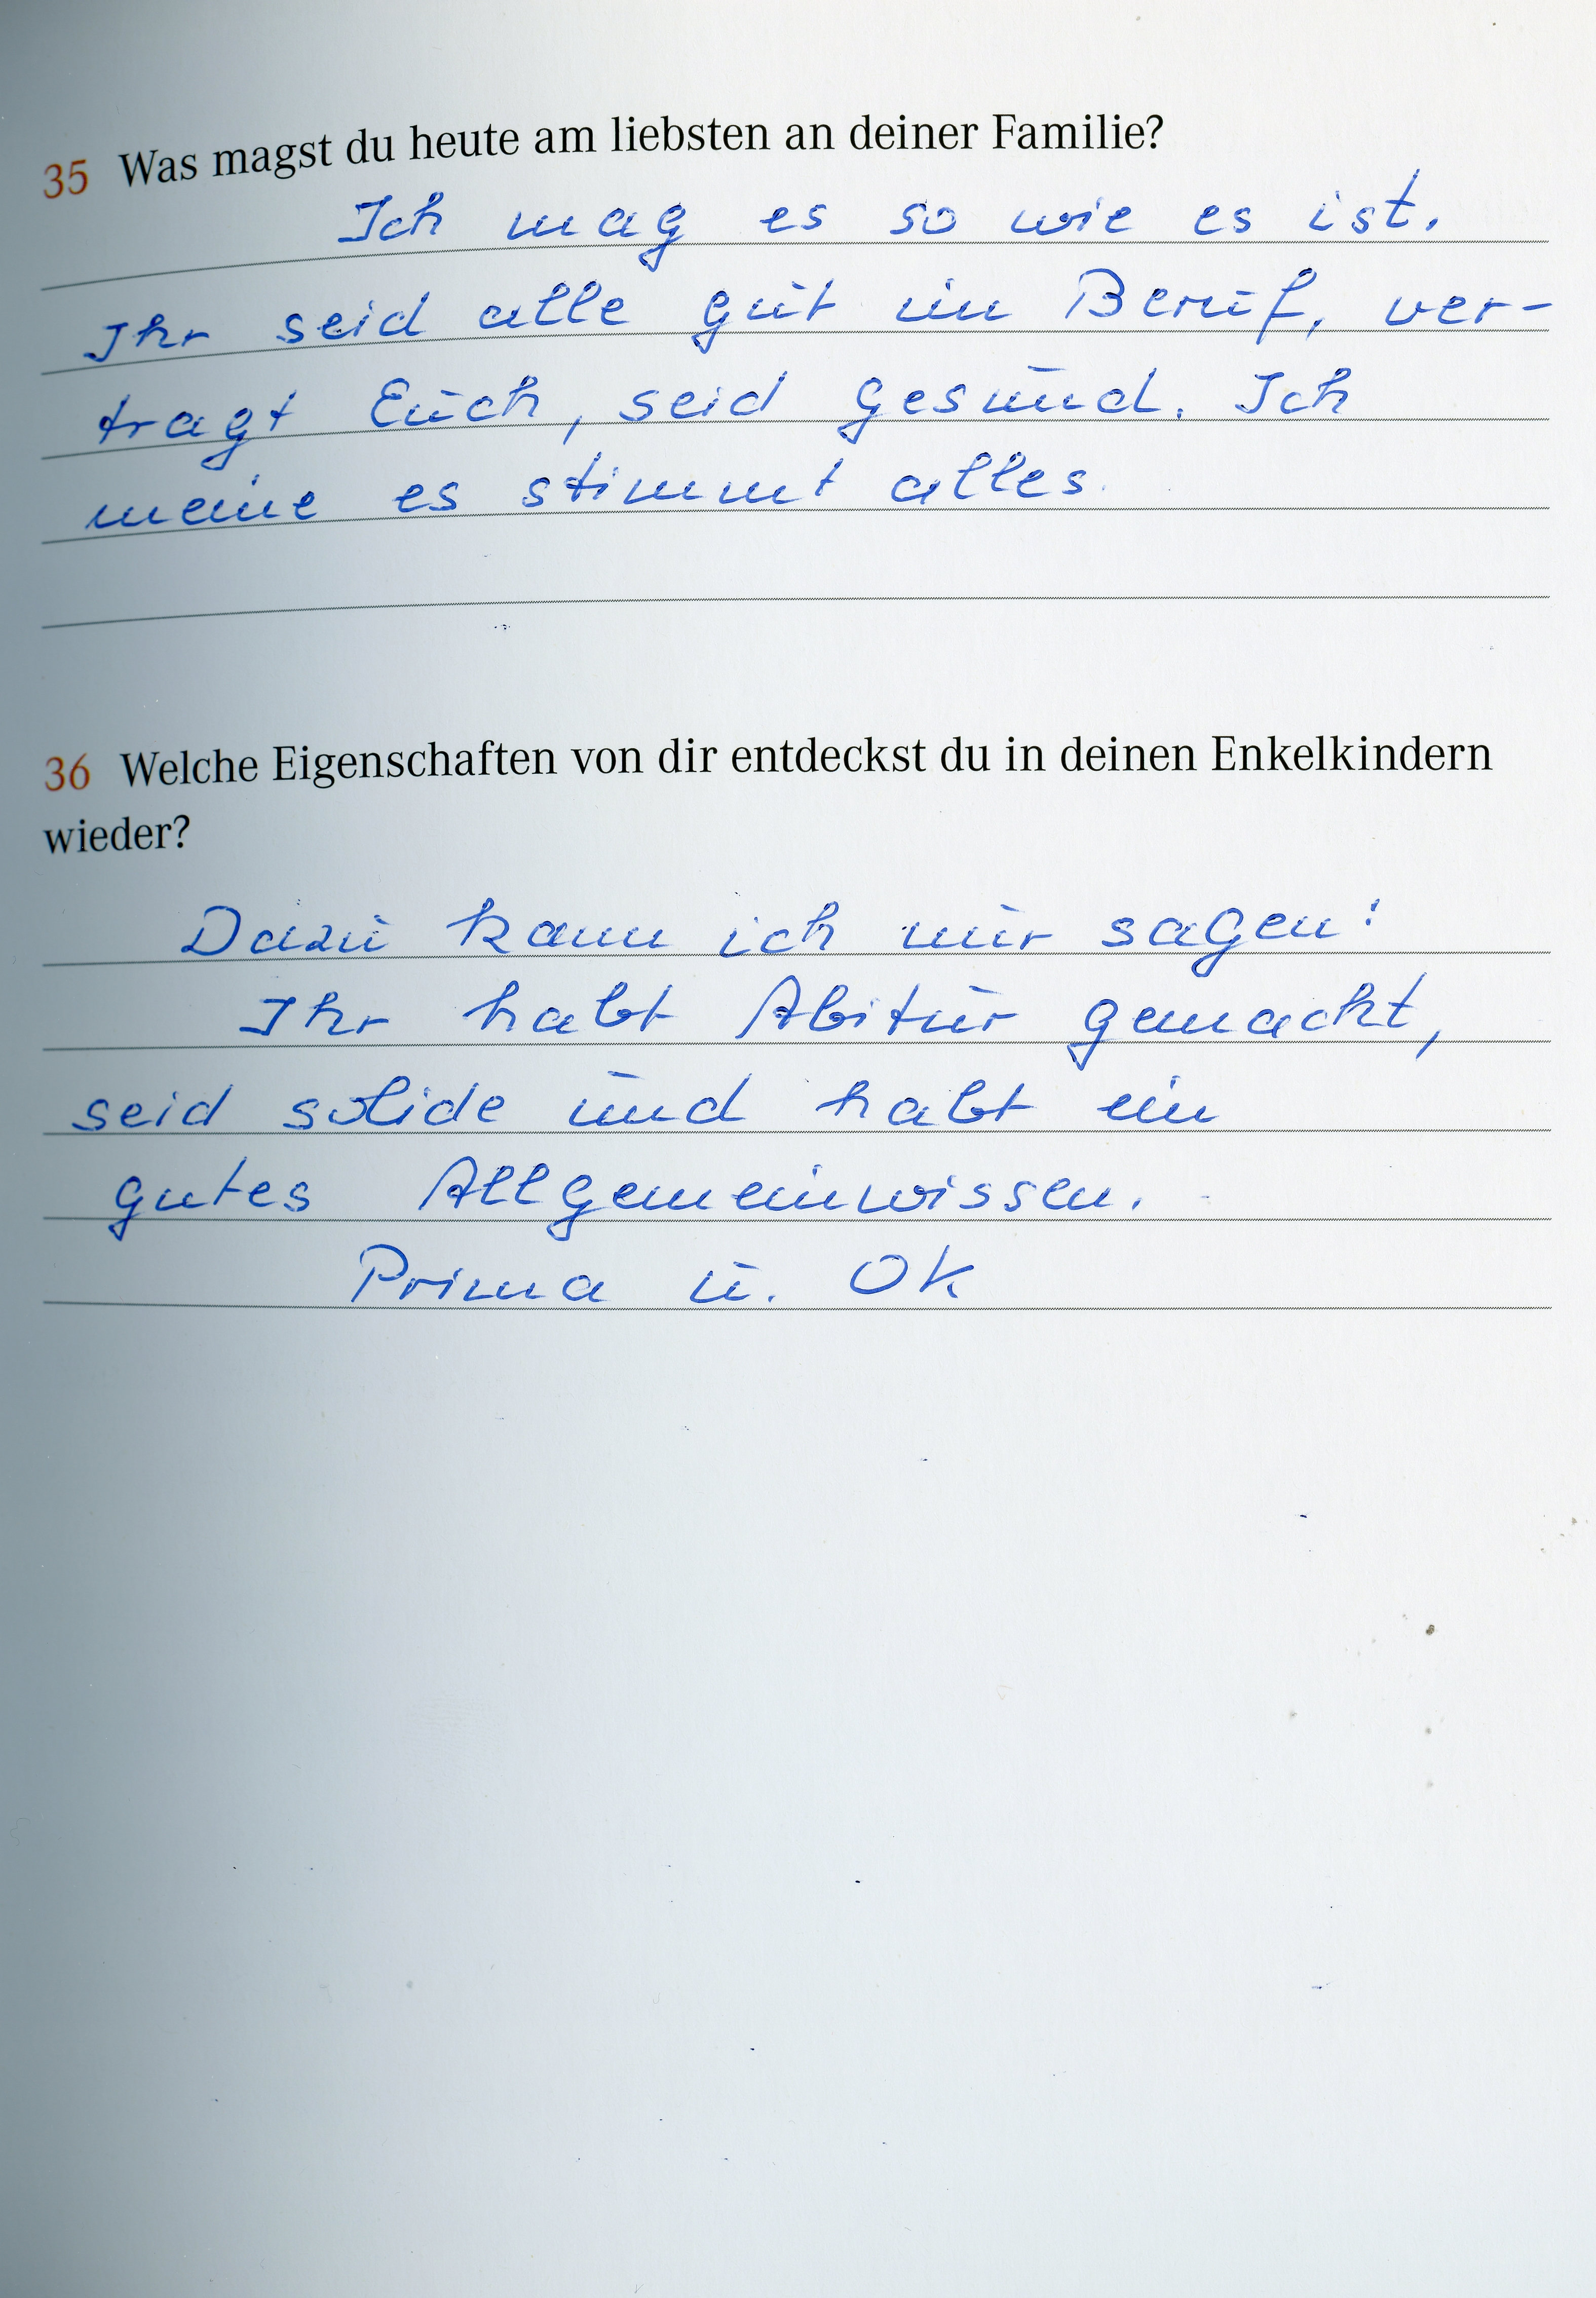 35 Was magst du heute am liebsten an deiner Familie?
Ich mag es so wie es ist.
Ihr seid alle gut im Beruf, ver-
tragt Euch, seid gesund. Ich
meine es stimmt alles.
36 Welche Eigenschaften von dir entdeckst du in deinen Enkelkindern
wieder?
Dazu kann ich nur sagen:
Ihr habt Abitur gemacht,
seid solide und habt ein
gutes Allgemeinwissen.
Prima u. OK